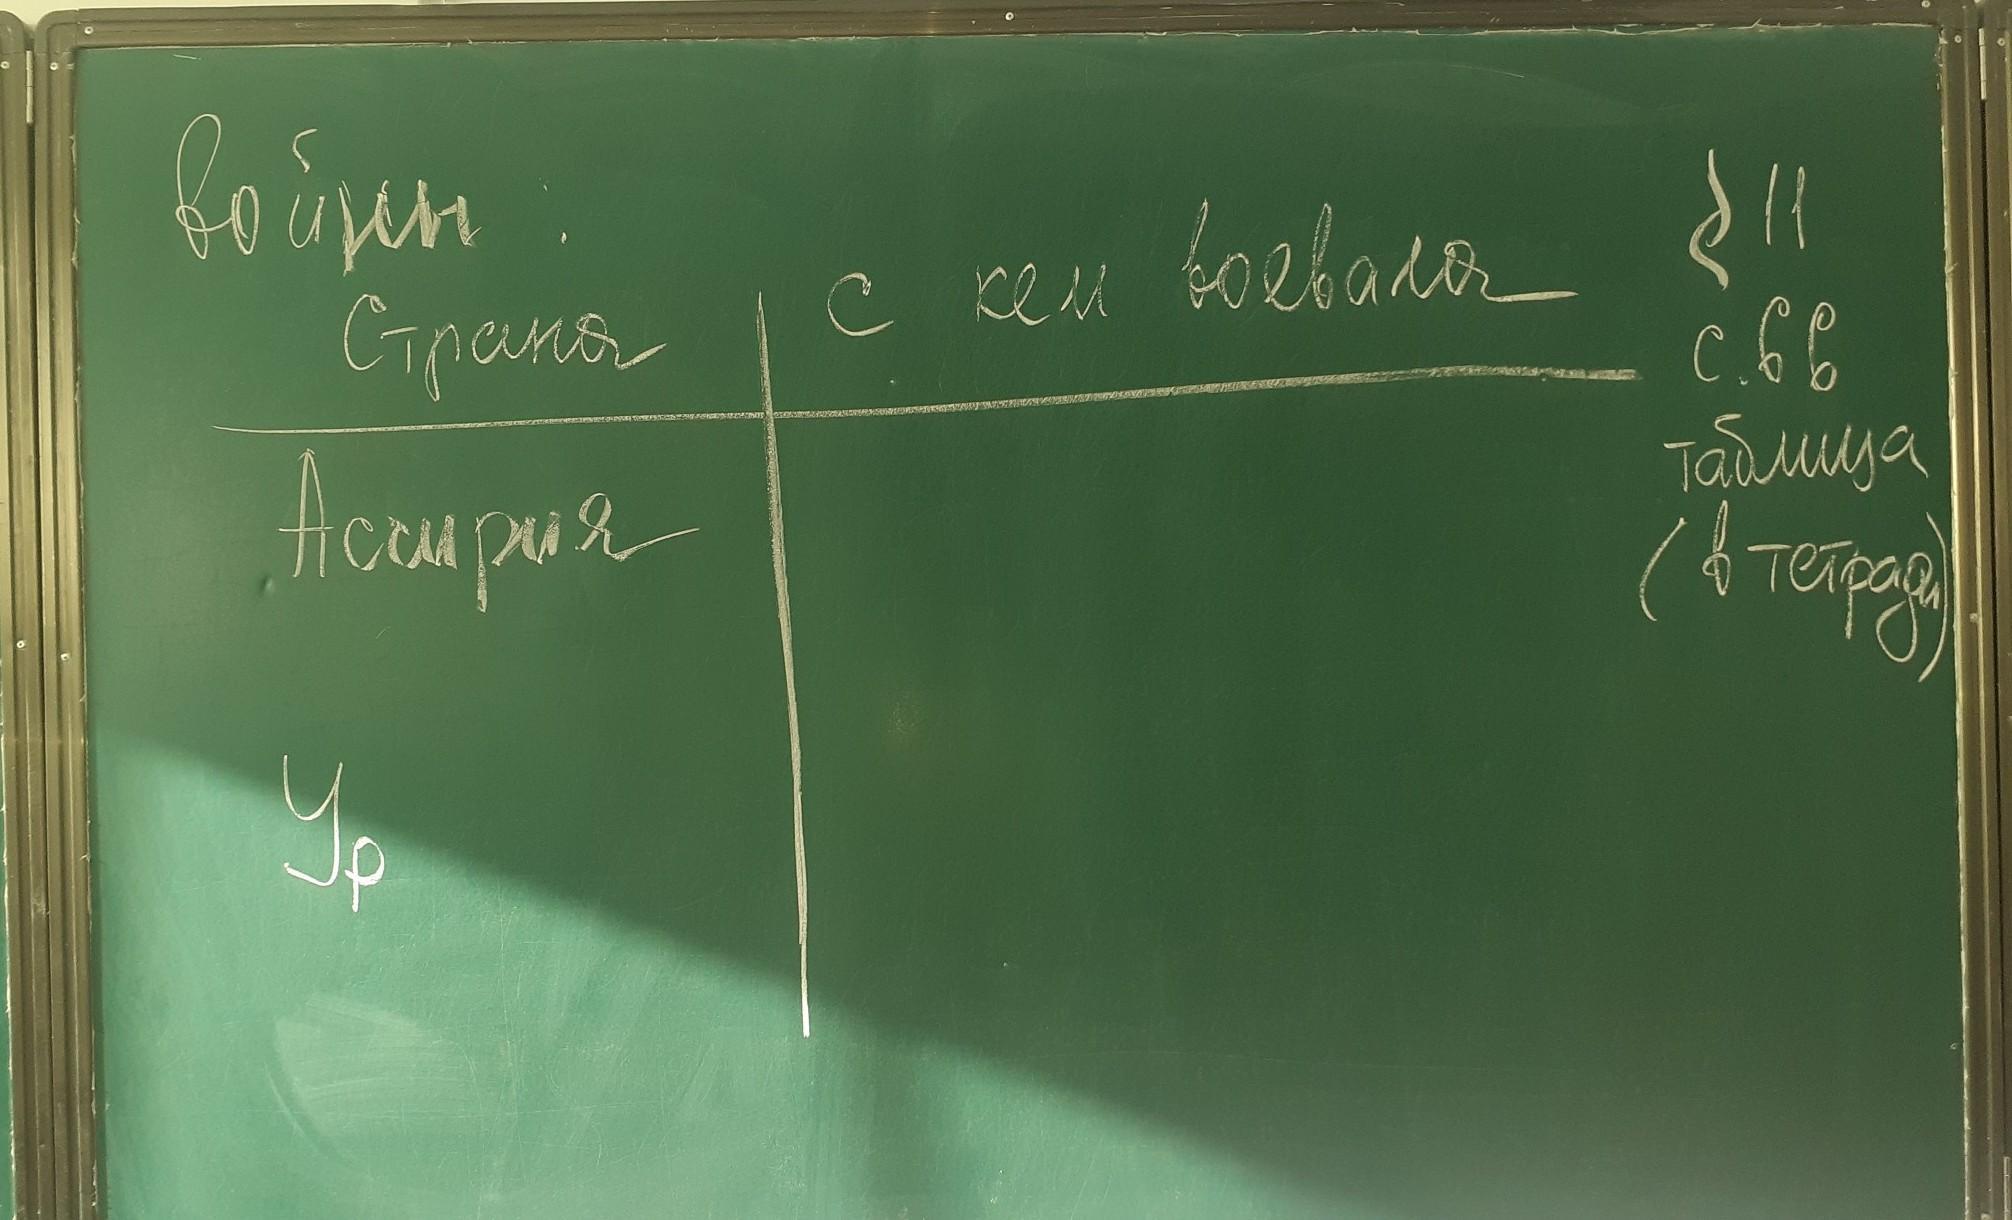 Войны:
Страна
с кем воевала
Ассирия
Ур
§ 11
с. 66
таблица
(в тетради)